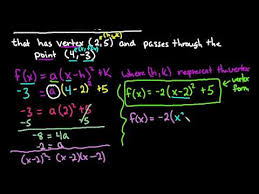 that has vertex (2,5) and passes through the
point (4,-3)
f(x) = a(x-h)² + k
where (h,k) represent the vertex
-3 = a(4-2)² + 5
f(x) = -2(x-2)² + 5
vertex form
-3 = a(2)² + 5
-5 -5
f(x) = -2(x²
-8 = 4a
-2 = a
(x-2)² = (x-2)(x-2)